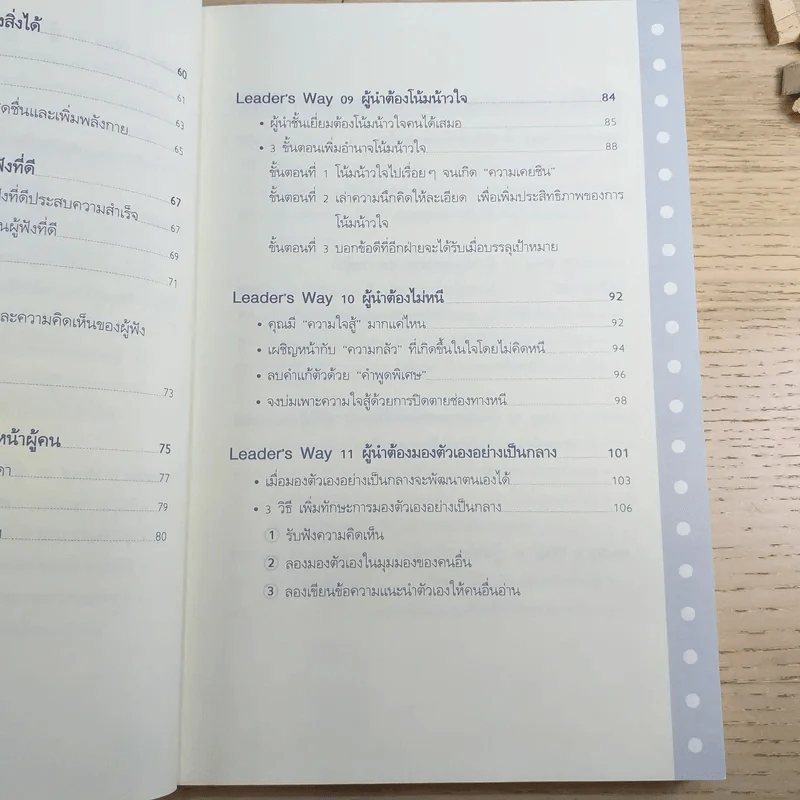 งสิ่งได้
60
61
ดชื่นและเพิ่มพลังกาย 63
65
ฟังที่ดี 67
ฟังที่ดีประสบความสำเร็จ 67
นผู้ฟังที่ดี 69
71
ละความคิดเห็นของผู้ฟัง
73
หน้าผู้คน 75
77
79
80
Leader's Way 09 ผู้นำต้องโน้มน้าวใจ 84
• ผู้นำชั้นเยี่ยมต้องโน้มน้าวใจคนได้เสมอ 85
• 3 ขั้นตอนเพิ่มอำนาจโน้มน้าวใจ 88
ขั้นตอนที่ 1 โน้มน้าวใจไปเรื่อยๆ จนเกิด "ความเคยชิน"
ขั้นตอนที่ 2 เล่าความนึกคิดให้ละเอียด เพื่อเพิ่มประสิทธิภาพของการ
โน้มน้าวใจ
ขั้นตอนที่ 3 บอกข้อดีที่อีกฝ่ายจะได้รับเมื่อบรรลุเป้าหมาย
Leader's Way 10 ผู้นำต้องไม่หนี 92
• คุณมี "ความใจสู้" มากแค่ไหน 92
• เผชิญหน้ากับ "ความกลัว" ที่เกิดขึ้นในใจโดยไม่คิดหนี 94
• ลบคำแก้ตัวด้วย "คำพูดพิเศษ" 96
• จงบ่มเพาะความใจสู้ด้วยการปิดตายช่องทางหนี 98
Leader's Way 11 ผู้นำต้องมองตัวเองอย่างเป็นกลาง 101
• เมื่อมองตัวเองอย่างเป็นกลางจะพัฒนาตนเองได้ 103
• 3 วิธี เพิ่มทักษะการมองตัวเองอย่างเป็นกลาง 106
1 รับฟังความคิดเห็น
2 ลองมองตัวเองในมุมมองของคนอื่น
3 ลองเขียนข้อความแนะนำตัวเองให้คนอื่นอ่าน